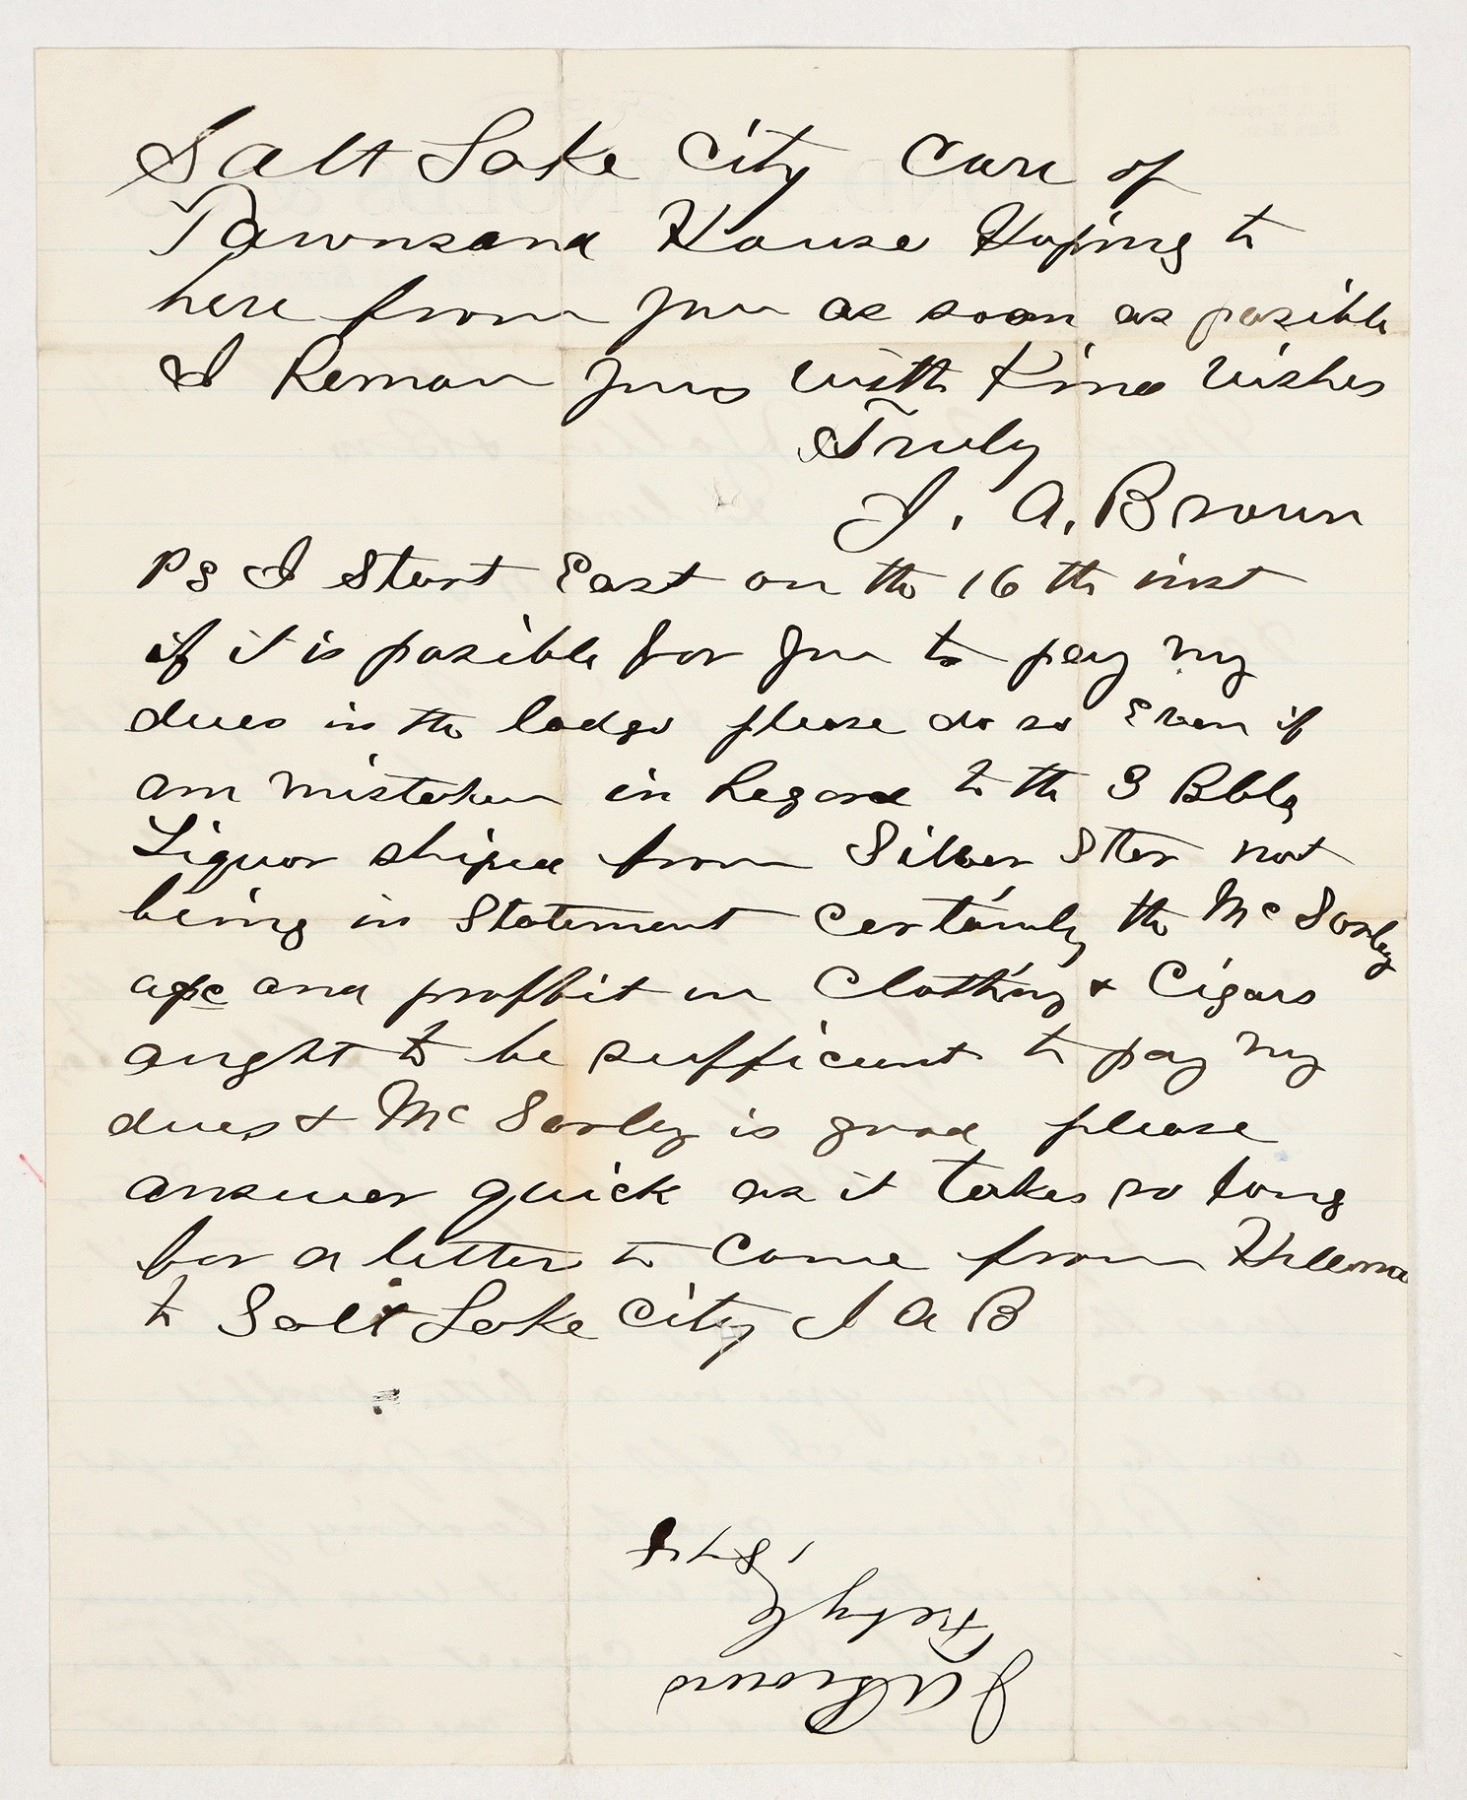 Salt Lake City Care of
Townsend House Hoping to
here from you as soon as posible
I Remain yours with Kind Wishes
Truly
J. A. Brown
Ps I Start East on the 16 th inst
if it is posible for you to pay my
dues in the lodge please do so Even if
am mistaken in Regard to the 3 Bbls
Liquor shiped from Silver Ster not
being in Statement Certainly the McSorley
a/c and proffit on Clothing & Cigars
aught to be sufficient to pay my
dues & McSorley is good please
answer quick as it takes so long
for a letter to Come from Hellena
to Salt Lake City J A B
J A Brown
Feby
187